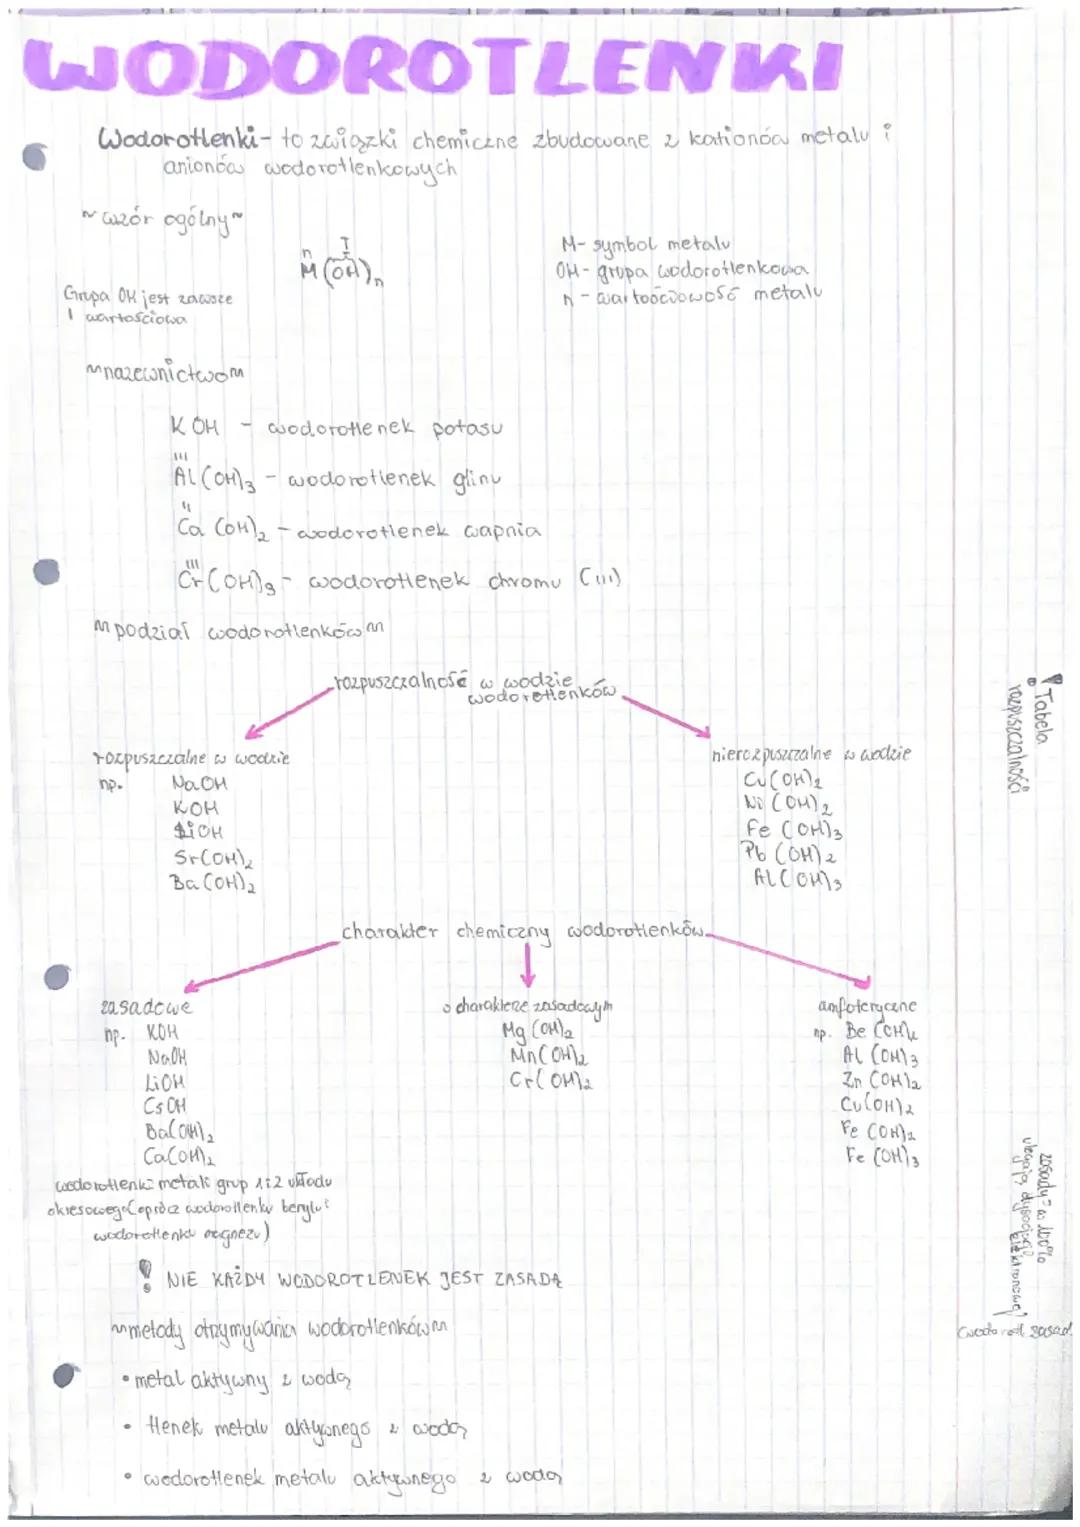 WODOROTLENKI
Wodorotlenki - to związki chemiczne zbudowane z kationów metalu i
anionów wodorotlenkowych
~ wzór ogólny ~
n I
M (OH)n
M - symbol metalu
OH - grupa wodorotlenkowa
n - wartościowość metalu
Grupa OH jest zawsze
1 wartościowa
~ nazewnictwo ~
KOH - wodorotlenek potasu
III
Al(OH)3 - wodorotlenek glinu
II
Ca(OH)2 - wodorotlenek wapnia
III
Cr(OH)3 - wodorotlenek chromu (III)
~ podział wodorotlenków ~
rozpuszczalność w wodzie
wodorotlenków
rozpuszczalne w wodzie
np. NaOH
KOH
LiOH
Sr(OH)2
Ba(OH)2
nierozpuszczalne w wodzie
Cu(OH)2
Ni(OH)2
Fe(OH)3
Pb(OH)2
Al(OH)3
! Tabela
rozpuszczalności
charakter chemiczny wodorotlenków
zasadowe
np. KOH
NaOH
LiOH
CsOH
Ba(OH)2
Ca(OH)2
wodorotlenki metali grup 1 i 2 układu
okresowego (oprócz wodorotlenku berylu i
wodorotlenku magnezu)
o charakterze zasadowym
Mg(OH)2
Mn(OH)2
Cr(OH)2
amfoteryczne
np. Be(OH)2
Al(OH)3
Zn(OH)2
Cu(OH)2
Fe(OH)2
Fe(OH)3
zasady - w 100%
ulegają dysocjacji
! NIE KAŻDY WODOROTLENEK JEST ZASADĄ
~ metody otrzymywania wodorotlenków ~
• metal aktywny z wodą
• tlenek metalu aktywnego z wodą
• wodorotlenek metalu aktywnego z wodą